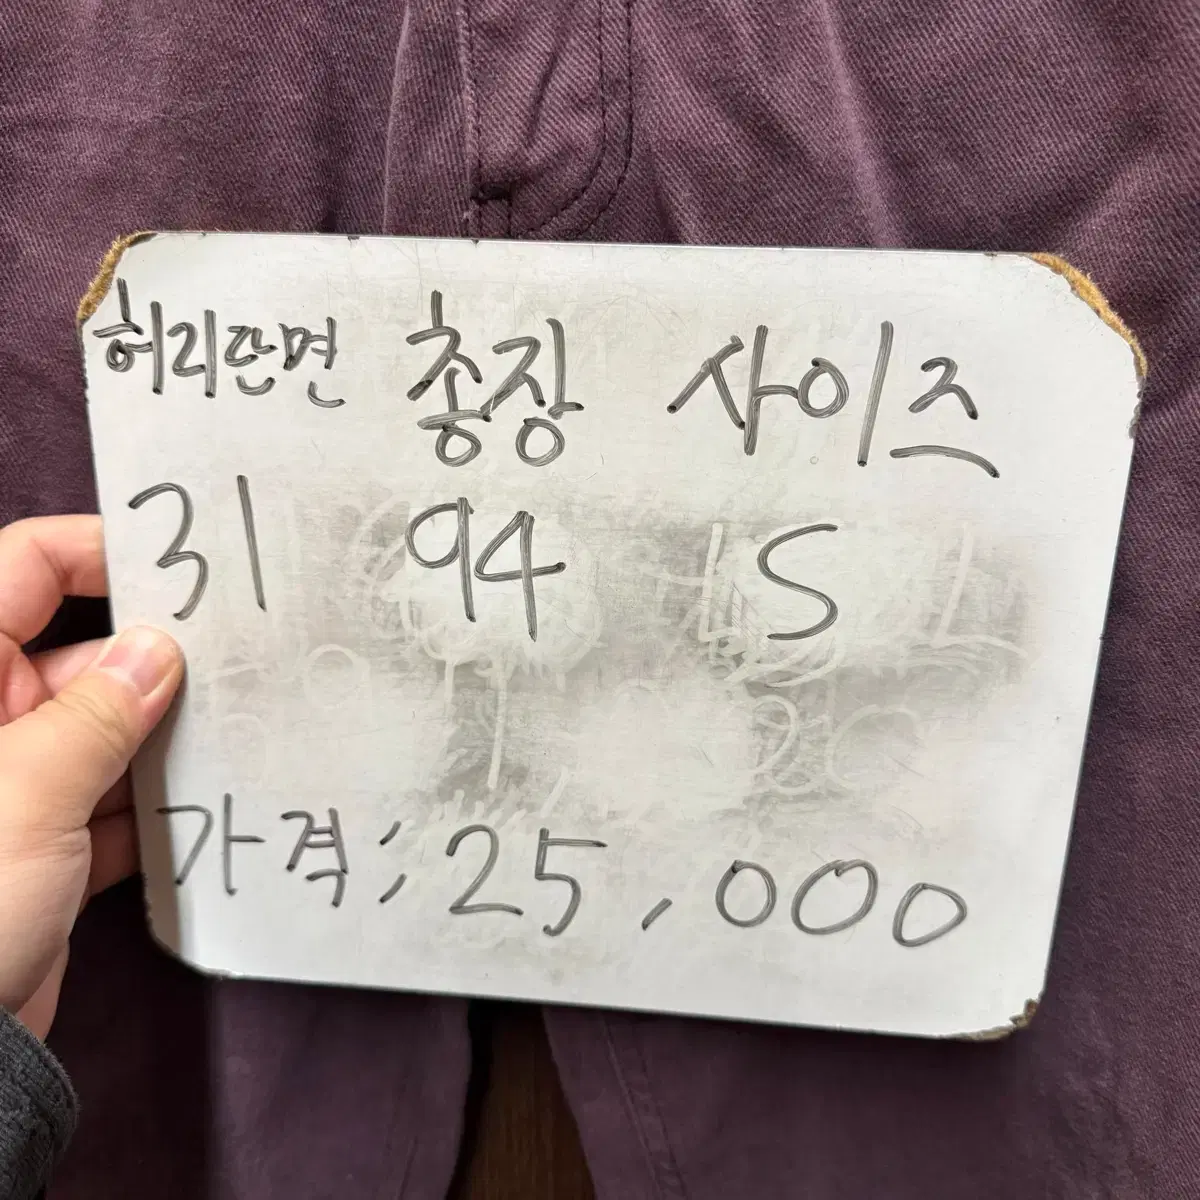 허리단면 총장 사이즈
31 94 S
가격; 25,000